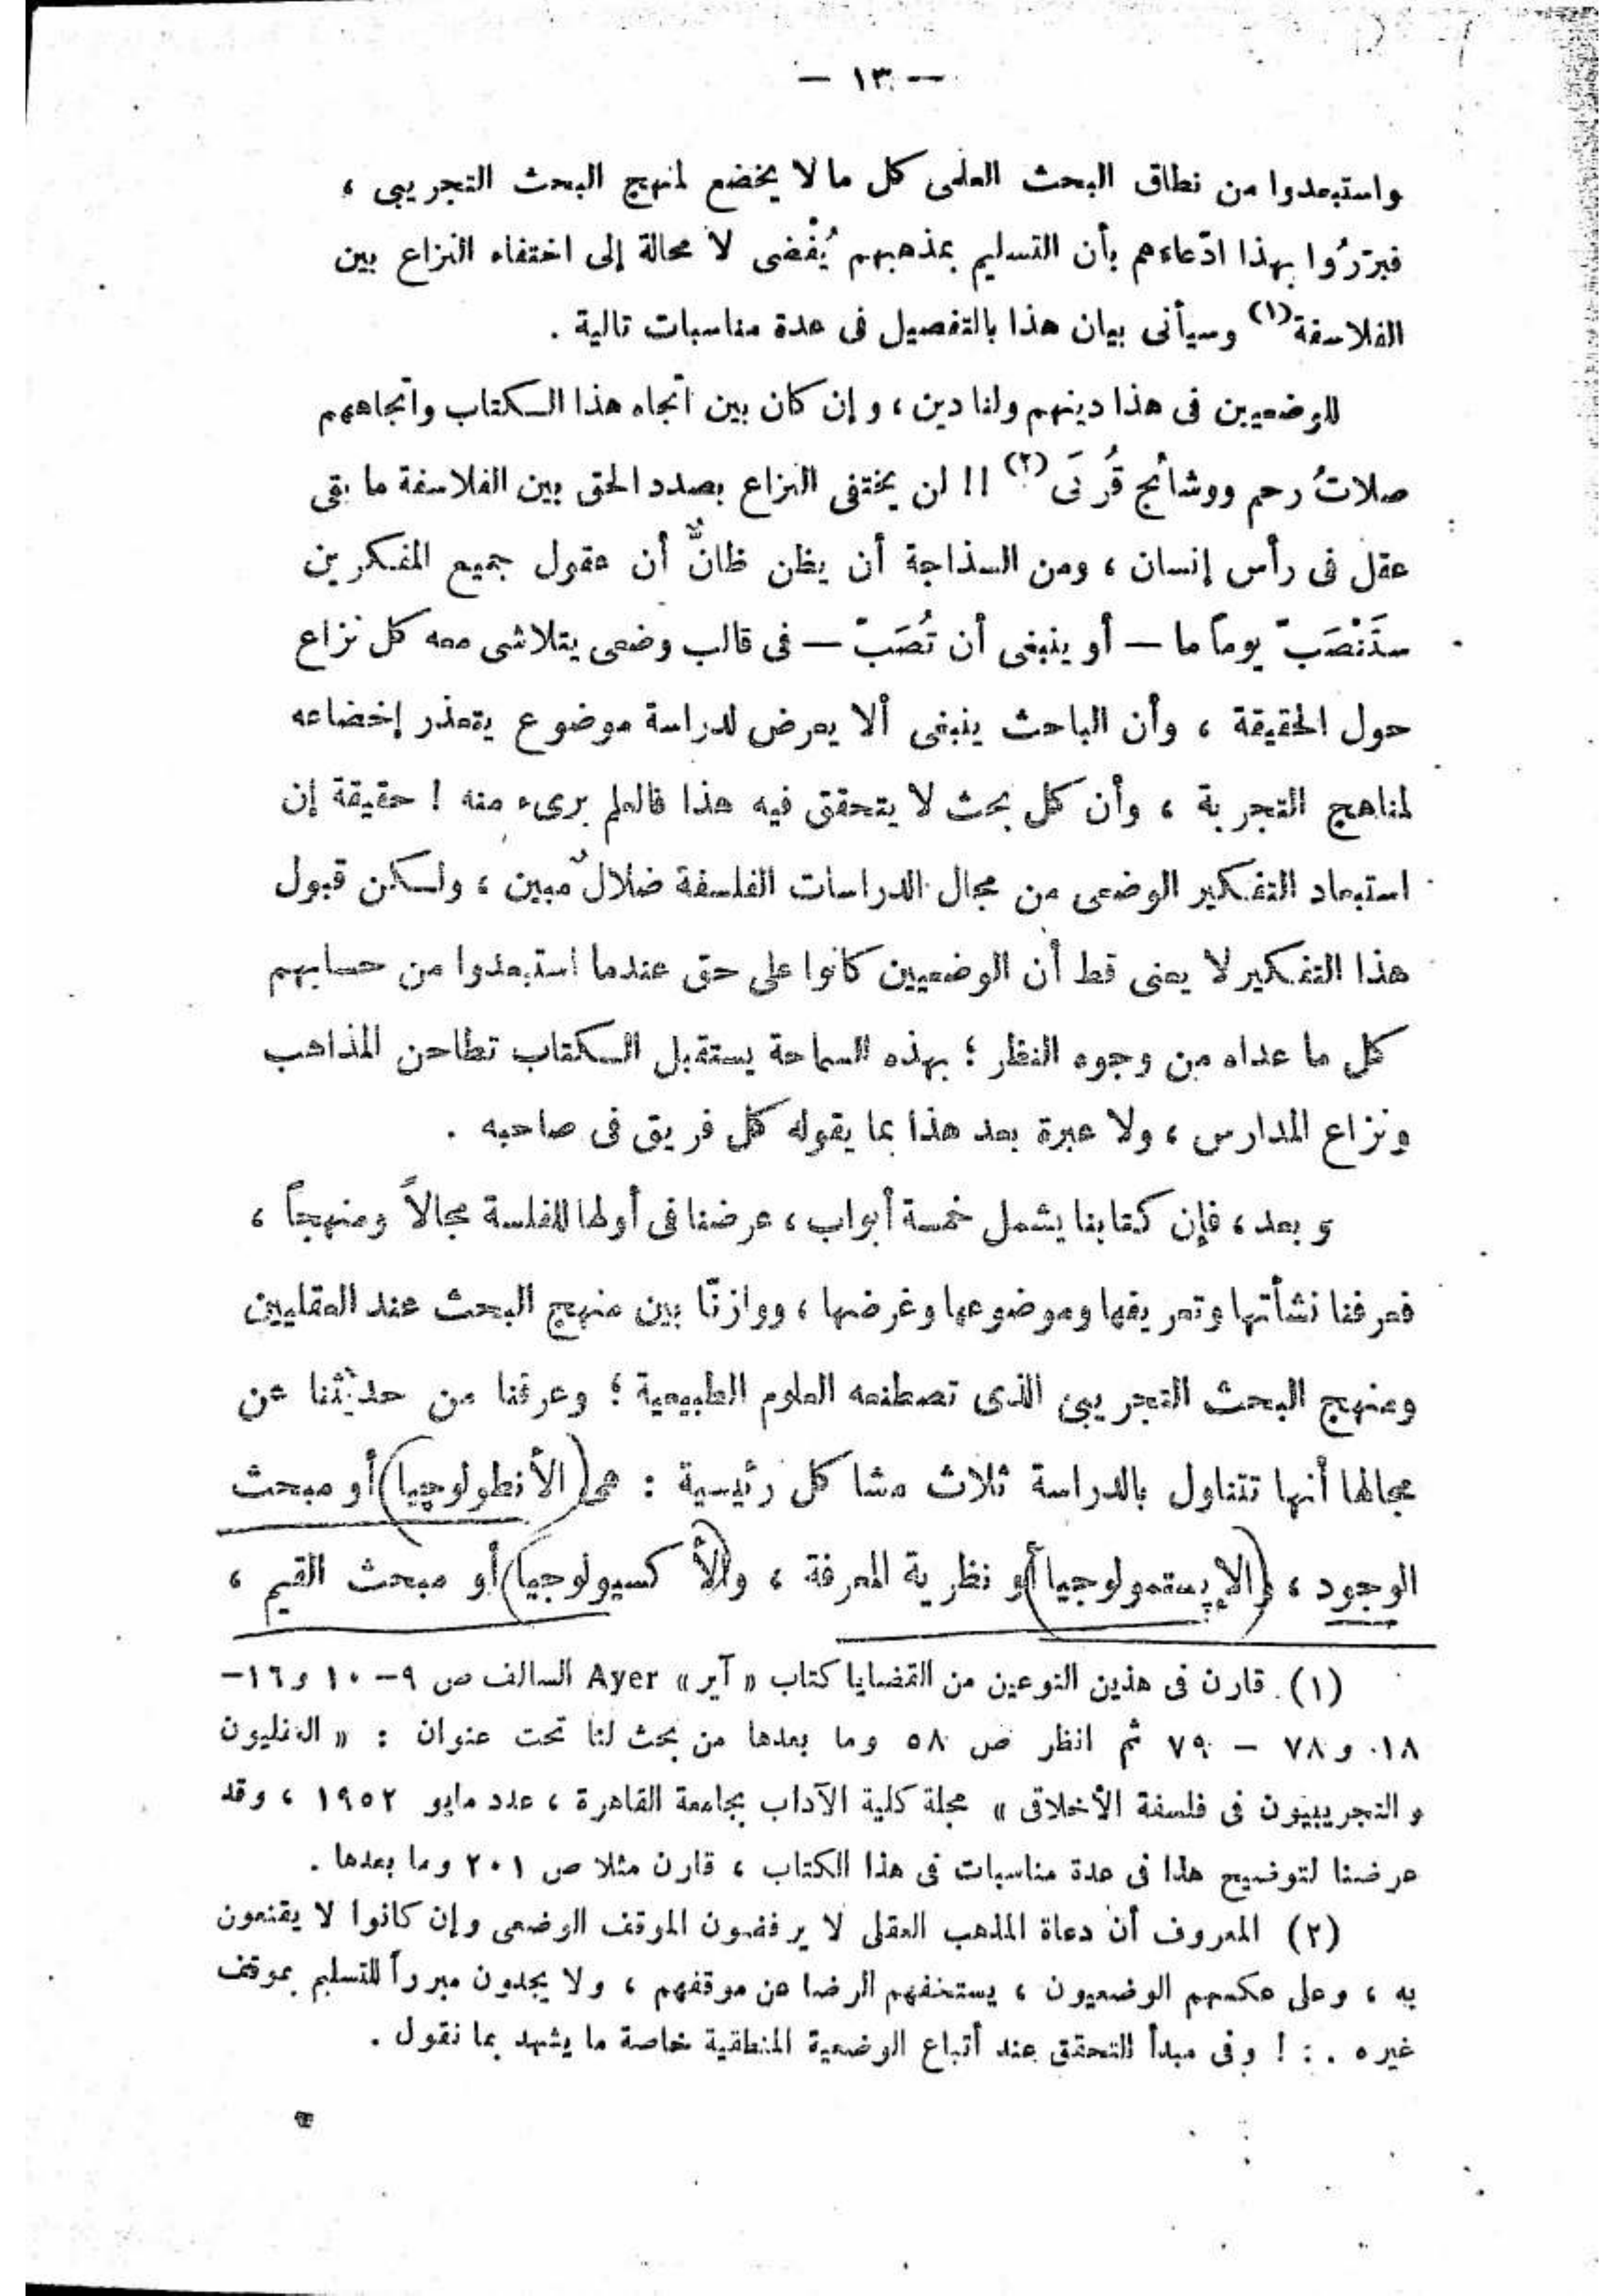 — ١٣ —
واستبعدوا من نطاق البحث العلمى كل ما لا يخضع لمنهج البحث التجريبى ،
فبرّرُوا بهذا ادّعاءهم بأن التسليم بمذهبهم يُفْضى لا محالة إلى اختفاء النزاع بين
الفلاسفة(١) وسيأتى بيان هذا بالتفصيل فى عدة مناسبات تالية .
للوضعيين فى هذا دينهم ولنا دين ، وإن كان بين اتجاه هذا الكتاب واتجاههم
صلاتُ رحم ووشائج قُربَى (٢) !! لن يختفى النزاع بصدد الحق بين الفلاسفة ما بقى
عقل فى رأس إنسان ، ومن السذاجة أن يظن ظانٌّ أن عقول جميع المفكرين
ستَنْصَبّ يوماً ما — أو ينبغى أن تُصَبّ — فى قالب وضعى يتلاشى معه كل نزاع
حول الحقيقة ، وأن الباحث ينبغى ألا يعرض لدراسة موضوع يتعذر إخضاعه
لمناهج التجربة ، وأن كل بحث لا يتحقق فيه هذا فالعلم برىء منه ! حقيقة إن
استبعاد التفكير الوضعى من مجال الدراسات الفلسفة ضلالٌ مبين ، ولكن قبول
هذا التفكير لا يعنى قط أن الوضعيين كانوا على حق عندما استبعدوا من حسابهم
كل ما عداه من وجوه النظر ؛ بهذه السماحة يستقبل الكتاب تطاحن المذاهب
ونزاع المدارس ، ولا عبرة بعد هذا بما يقوله كل فريق فى صاحبه .
وبعد ، فإن كتابنا يشمل خمسة أبواب ، عرضنا فى أولها للفلسة مجالاً ومنهجاً ،
فعرفنا نشأتها وتعريفها وموضوعها وغرضها ، ووازنّا بين منهج البحث عند العقليين
ومنهج البحث التجريبى الذى تصطنعه العلوم الطبيعية ؛ وعرفنا من حديثنا عن
مجالها أنها تتناول بالدراسة ثلاث مشاكل رئيسية : هى (الأنطولوچيا) أو مبحث
الوجود ، و(الإپستمولوجيا) أو نظرية المعرفة ، و(الأكسيولوجيا) أو مبحث القيم ،
(١) . قارن فى هذين النوعين من القضايا كتاب « آير » Ayer السالف ص ٩ – ١٠ و ١٦ –
١٨ و ٧٨ – ٧٩ ثم انظر ص ٥٨ وما بعدها من بحث لنا تحت عنوان : « العقليون
والتجريبيون فى فلسفة الأخلاق » مجلة كلية الآداب بجامعة القاهرة ، عدد مايو ١٩٥٢ ، وقد
عرضنا لتوضيح هذا فى عدة مناسبات فى هذا الكتاب ، قارن مثلا ص ٢٠١ وما بعدها .
(٢) المعروف أن دعاة المذهب العقلى لا يرفضون الموقف الوضعى وإن كانوا لا يقنعون
به ، وعلى عكسهم الوضعيون ، يستخفهم الرضا عن موقفهم ، ولا يجدون مبرراً للتسليم بموقف
غيره . : ! وفى مبدأ التحقق عند أتباع الوضعية المنطقية خاصة ما يشهد بما نقول .